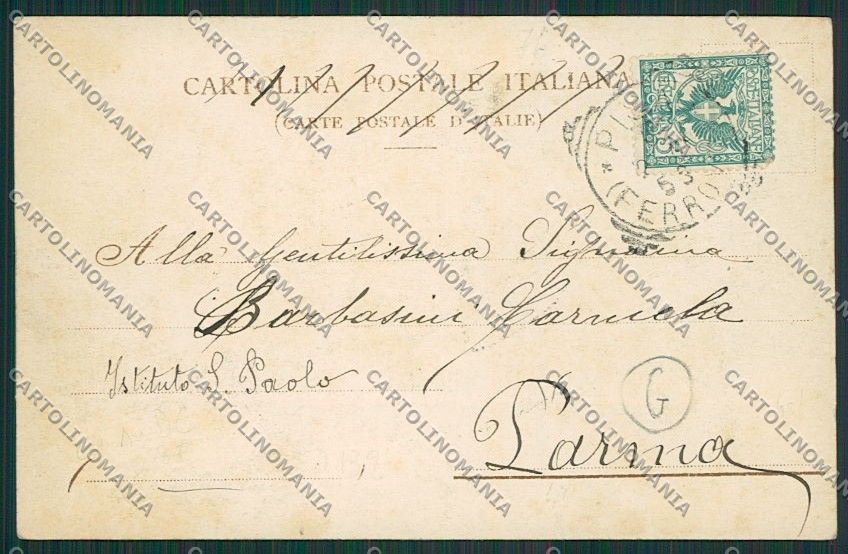 CARTOLINA POSTALE ITALIANA
(CARTE POSTALE D'ITALIE)
POSTE ITALIANE
(FERROV
Alla Gentilissima Signorina
Barbasini Carmela
Istituto S. Paolo
G
Parma
CARTOLINOMANIA